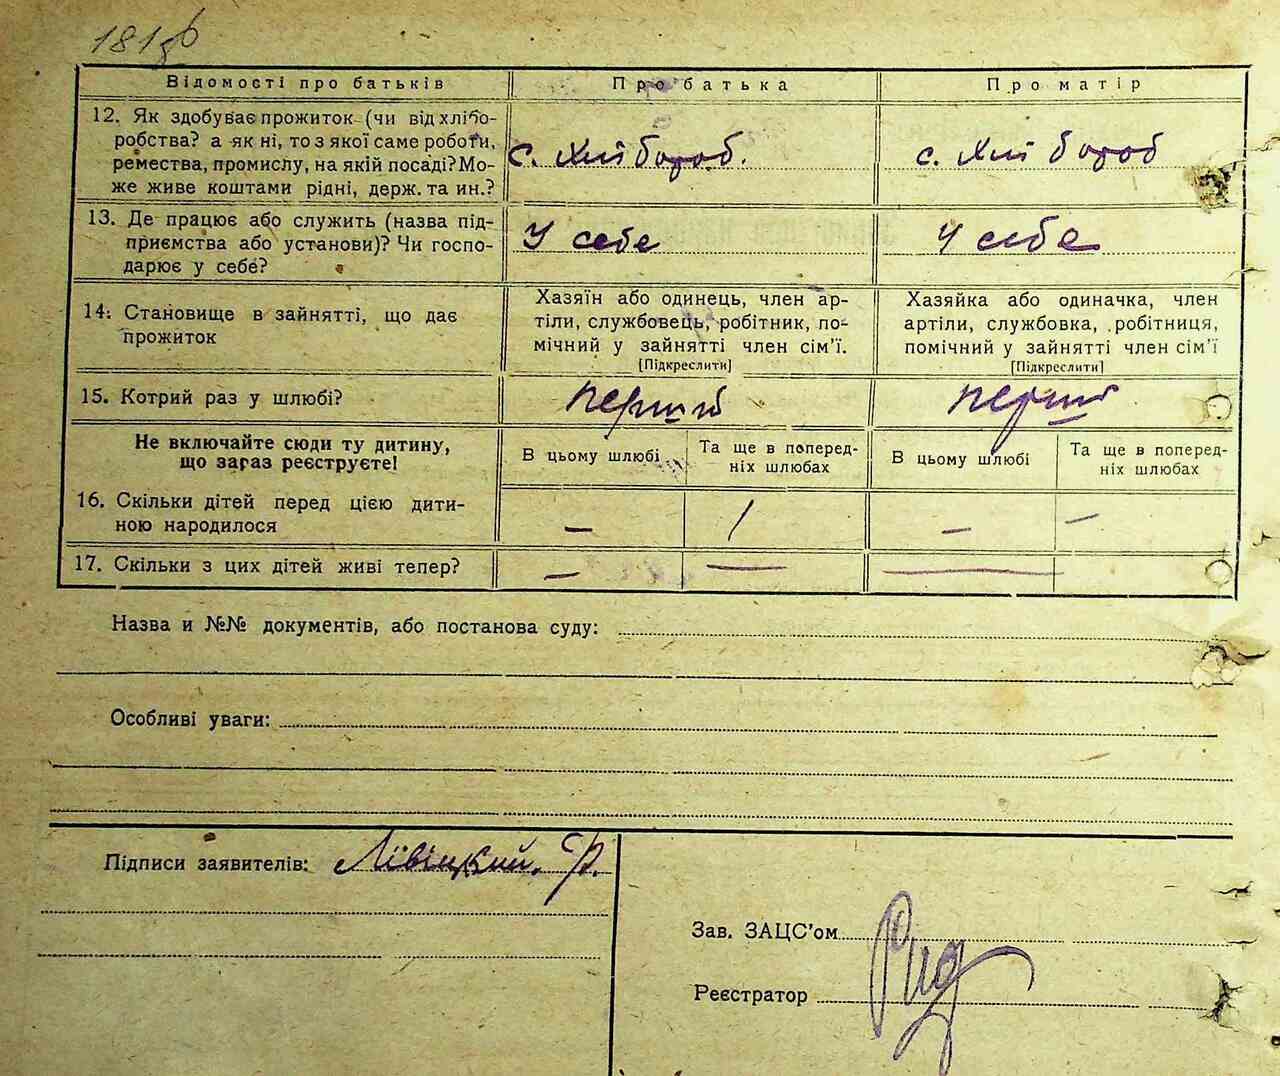 181зв
Відомості про батьків
Про батька
Про матір
12. Як здобуває прожиток (чи від хлібо-
робства? а як ні, то з якої саме роботи,
ремества, промислу, на якій посаді? Мо-
же живе коштами рідні, держ. та ин.?
с. Хлібороб.
с. Хлібороб
13. Де працює або служить (назва під-
приємства або установи)? Чи госпо-
дарює у себе?
У себе
У себе
14. Становище в зайнятті, що дає
прожиток
Хазяїн або одинець, член ар-
тіли, службовець, робітник, по-
мічний у зайнятті член сім'ї.
[Підкреслити]
Хазяйка або одиначка, член
артіли, службовка, робітниця,
помічний у зайнятті член сім'ї
[Підкреслити]
15. Котрий раз у шлюбі?
перший
перший
Не включайте сюди ту дитину,
що зараз реєструєте!
В цьому шлюбі
Та ще в поперед-
ніх шлюбах
В цьому шлюбі
Та ще в поперед-
ніх шлюбах
16. Скільки дітей перед цією дити-
ною народилося
— / — —
17. Скільки з цих дітей живі тепер?
— — —
Назва и №№ документів, або постанова суду:
Особливі уваги:
Підписи заявителів: Лівіцкий. Р.
Зав. ЗАЦС'ом
Реєстратор